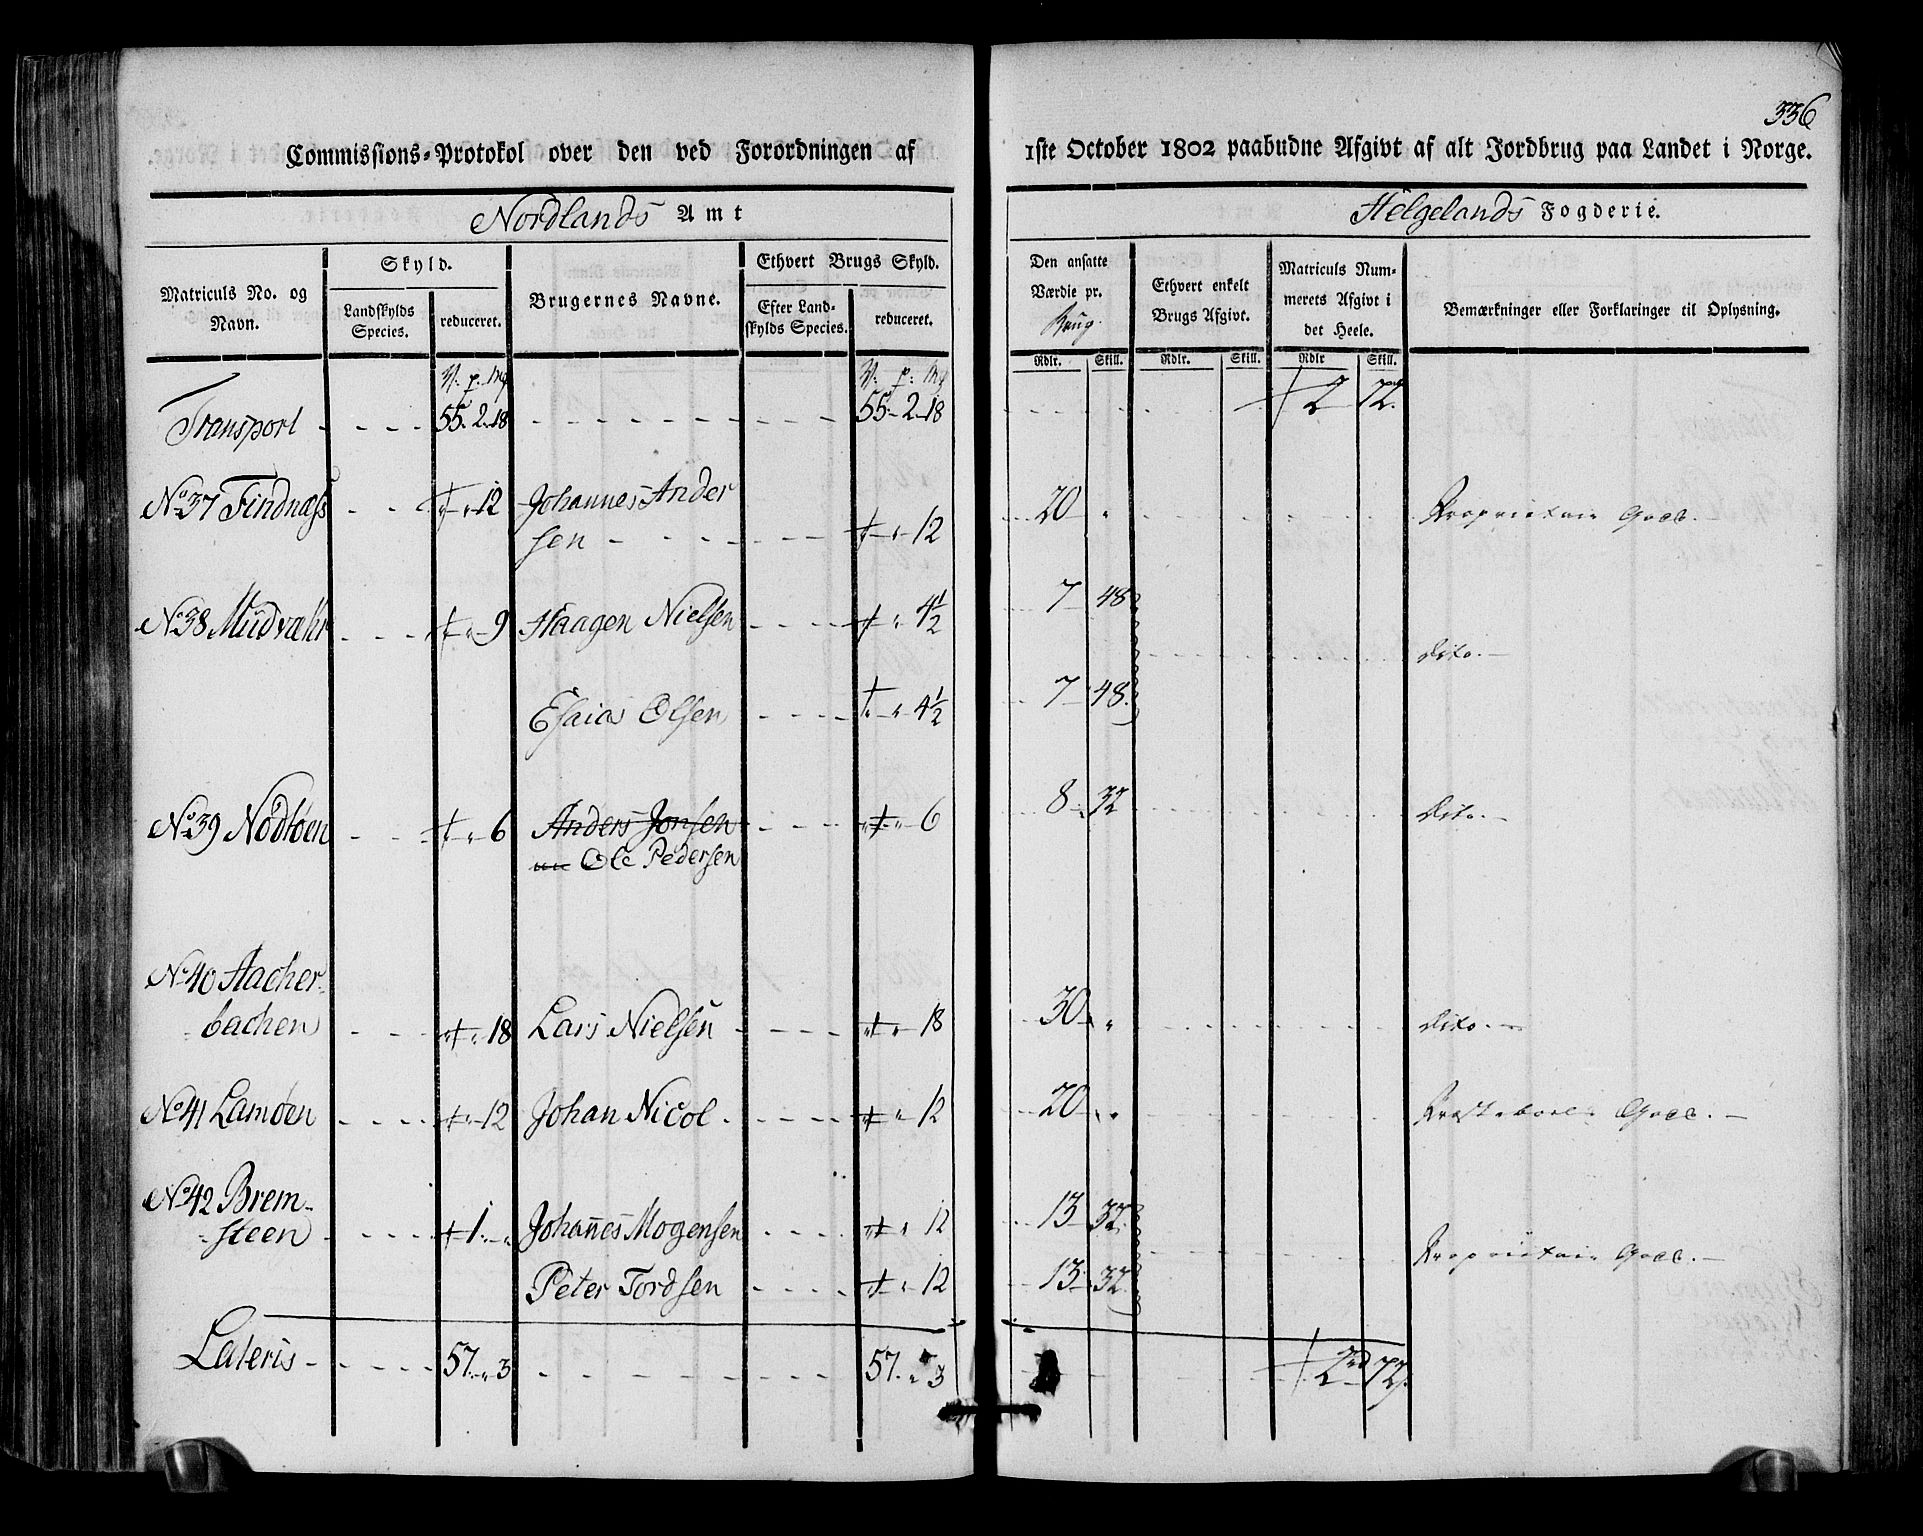 336
Commissions-Protokol over den ved Forordningen af 1ste October 1802 paabudne Afgivt af alt Jordbrug paa Landet i Norge.
Nordlands Amt
Helgelands Fogderie.
Matriculs No. og Navn.
Skyld.
Landskylds Species.
reduceret.
Brugernes Navne.
Ethvert Brugs Skyld.
Efter Landskylds Species.
reduceret.
Den ansatte Værdie pr. Brug.
Ethvert enkelt Brugs Afgivt.
Matriculs Nummerets Afgivt i det Heele.
Bemærkninger eller Forklaringer til Oplysning.
Rdlr. Skill. Rdlr. Skill. Rdlr Skill.
V. p. Mk V. p. Mk
Transport 55. 2. 18 55 - 2 - 18 2 72.
No 37 Findnæss 12 Johannes Ander
sen 12 20 " Proprietair Gods.
No 38 Mudvæhr 9 Haagen Nielsen 4 1/2 7 48
Dito.
Esaias Olsen 4 1/2 7 48.
No 39 Nödlöen 6 Anders Jonsen 6 8 32 Dito.
Ole Pedersen
No 40 Aacher-
bachen 18 Lars Nielsen 18 30 " Dito.
No 41 Lamöen 12 Johan Nicol 12 20 " Præstebols Gods.
No 42 Brem-
steen 1 " Johannes Mogensen 12 13 32.
Proprietair Gods.
Peter Tordsen 12 13 32.
Lateris 57. " 3 57. " 3 2 72.